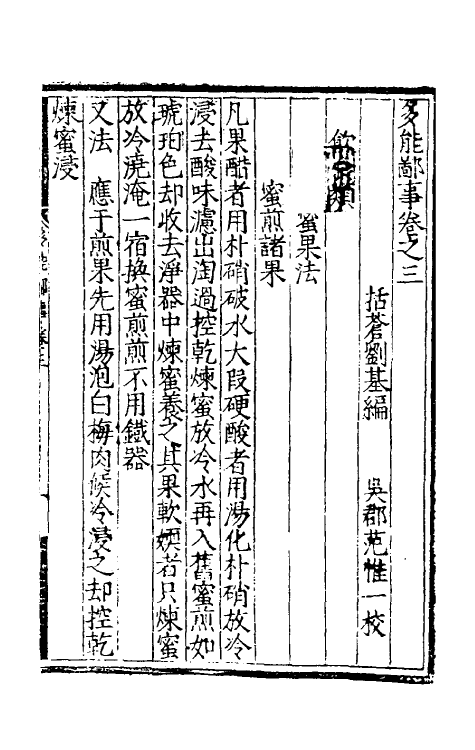 多能鄙事卷之三
括蒼劉基編　吳郡范惟一校
飲食類
蜜果法
蜜煎諸果
凡果酷者用朴硝破水大段硬酸者用湯化朴硝放冷
浸去酸味濾出淘過控乾煉蜜放冷水再入舊蜜煎如
琥珀色却收去淨器中煉蜜養之其果軟媆者只煉蜜
放冷澆淹一宿換蜜煎煎不用鐵器
又法　應于煎果先用湯泡白梅肉候冷浸之却控乾
煉蜜浸